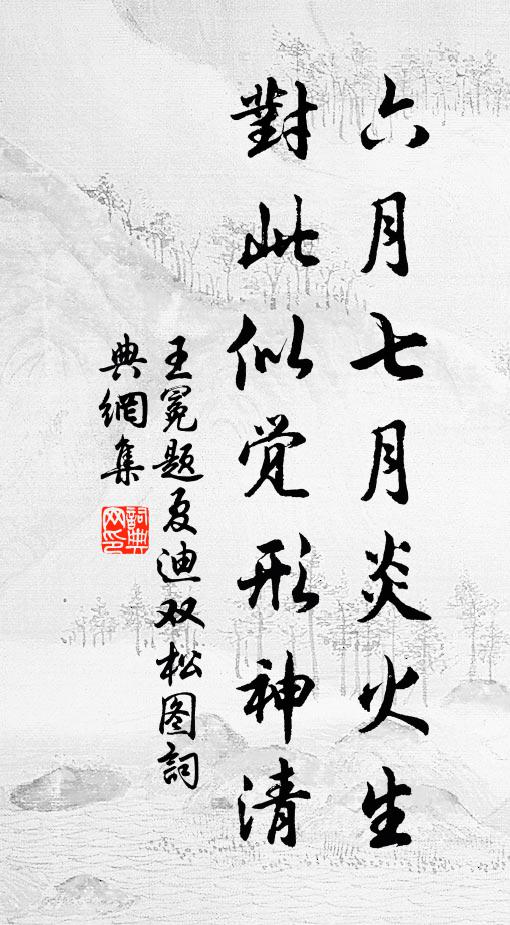 六月七月炎火生
對此似覺形神清
王冕题夏迪双松图詞
典網集
詞典网印